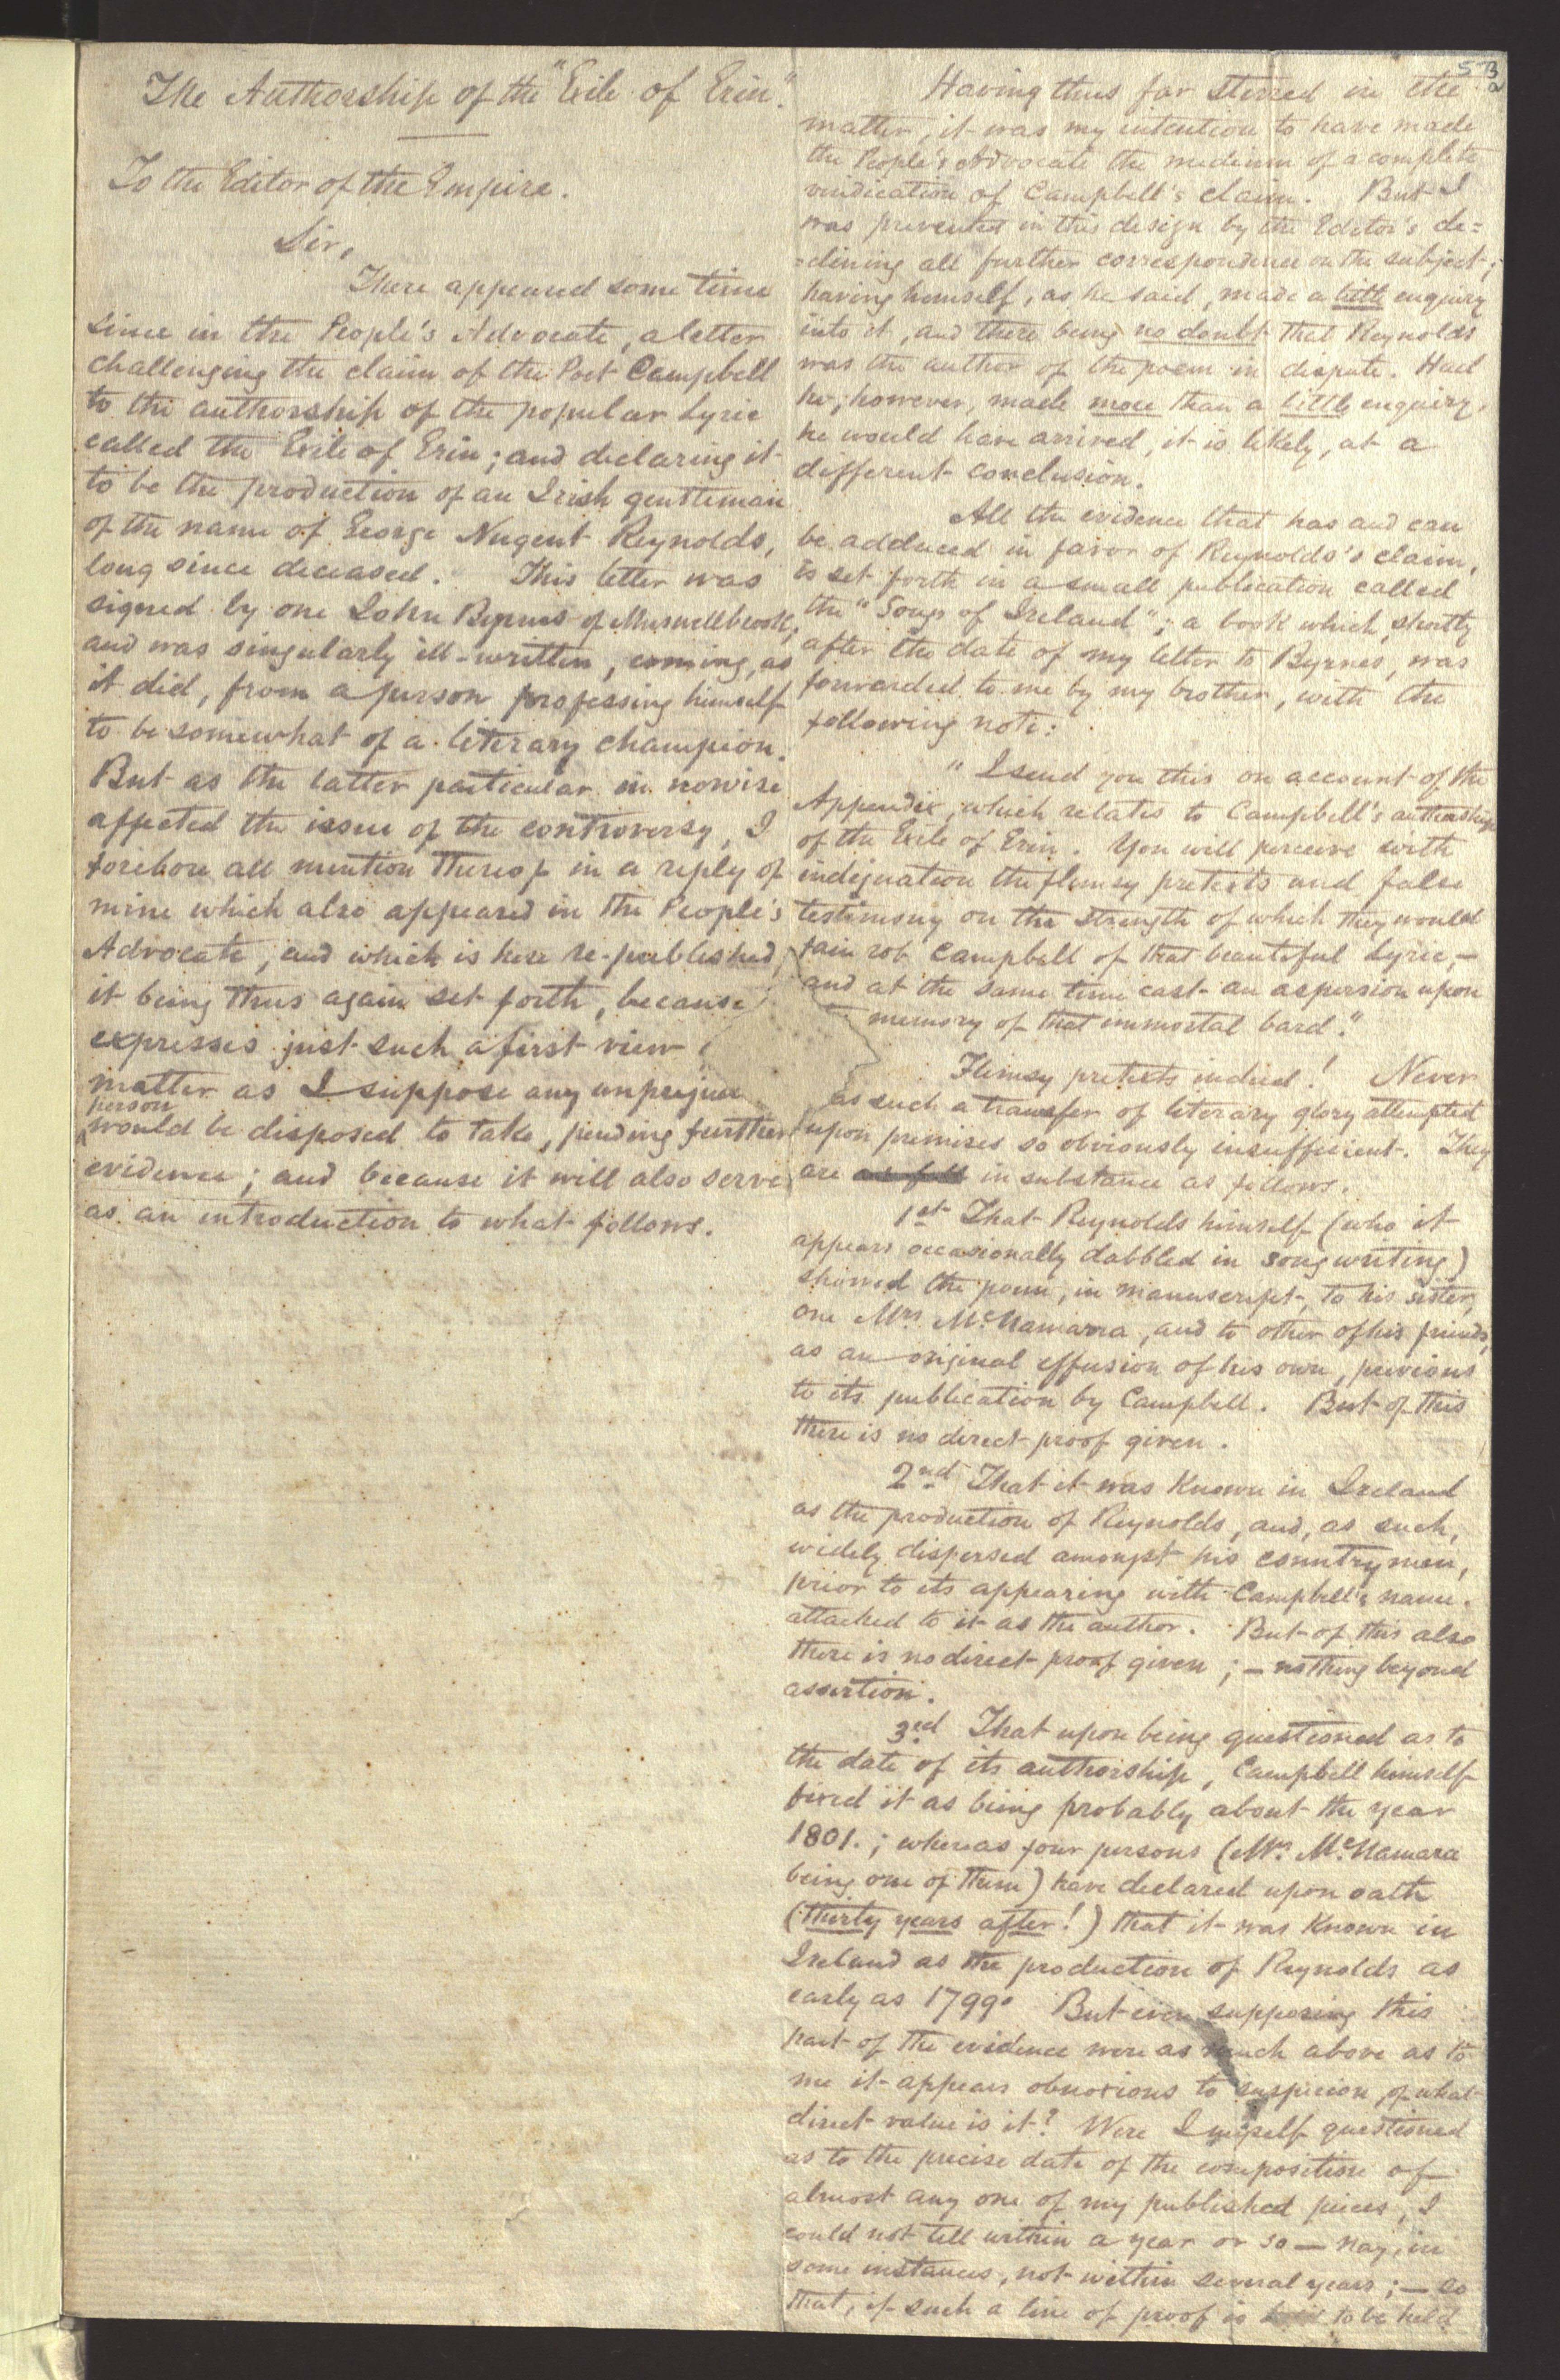 The Authorship of the "Exile of Erin."
To the Editor of the Empire.
Sir,
There appeared some time
since in the People's Advocate, a letter
challenging the claim of the Poet Campbell
to the authorship of the popular Lyric
called the Exile of Erin; and declaring it
to be the production of an Irish gentleman
of the name of George Nugent Reynolds,
long since deceased. This letter was
signed by one John Byrnes of Muswellbrook,
and was singularly ill-written, coming, as
it did, from a person professing himself
to be somewhat of a literary champion.
But as the latter particular in nowise
affected the issue of the controversy, I
forebore all mention thereof in a reply of
mine which also appeared in the People's
Advocate, and which is here re-published,
it being thus again set forth, because
expresses just such a first view
matter as I suppose any unprejud
person
would be disposed to take, pending further
evidence; and because it will also serve
as an introduction to what follows.
5 B
2
Having thus far stirred in the
matter, it was my intention to have made
the People's Advocate the medium of a complete
vindication of Campbell's claim. But I
was prevented in this design by the Editor's de=
=clining all further correspondence on the subject;
having himself, as he said, made a little enquiry
into it, and there being no doubt that Reynolds
was the author of the poem in dispute. Had
he, however, made more than a little enquiry,
he would have arrived, it is likely, at a
different conclusion.
All the evidence that has and can
be adduced in favor of Reynolds's claim,
is set forth in a small publication called
the "Songs of Ireland"; a book which, shortly
after the date of my letter to Byrnes, was
forwarded to me by my brother, with the
following note:
"I send you this on account of the
Appendix, which relates to Campbell's authorship
of the Exile of Erin. You will perceive with
indignation the flimsy pretexts and false
testimony on the strength of which they would
fain rob Campbell of that beautiful Lyric,—
and at the same time cast an aspersion upon
memory of that immortal bard."
Flimsy pretexts indeed! Never
as such a transfer of literary glory attempted
upon premises so obviously insufficient. They
are as foll in substance as follows.
1st That Reynolds himself (who it
appears occasionally dabbled in song writing)
showed the poem, in manuscript, to his sister,
one Mrs McNamara, and to other of his friends,
as an original effusion of his own, previous
to its publication by Campbell. But of this
there is no direct proof given.
2nd That it was known in Ireland
as the production of Reynolds, and, as such,
widely dispersed amongst his countrymen,
prior to its appearing with Campbell's name
attached to it as the author. But of this also
there is no direct proof given;—nothing beyond
assertion.
3rd That upon being questioned as to
the date of its authorship, Campbell himself
fixed it as being probably about the year
1801.; whereas four persons (Mrs McNamara
being one of them) have declared upon oath
(thirty years after!) that it was known in
Ireland as the production of Reynolds as
early as 1799. But even supposing this
part of the evidence were as much above as to
me it appears obnoxious to suspicion, of what
direct value is it? Were I myself questioned
as to the precise date of the composition of
almost any one of my published pieces, I
could not tell within a year or so — nay, in
some instances, not within several years;—so
that, if such a line of proof is to be held